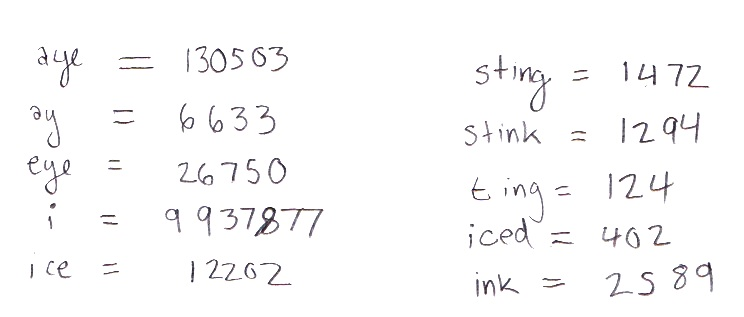 aye = 130503
ay = 6633
eye = 26750
i = 9937877
ice = 12202
sting = 1472
stink = 1294
ting = 124
iced = 402
ink = 2589